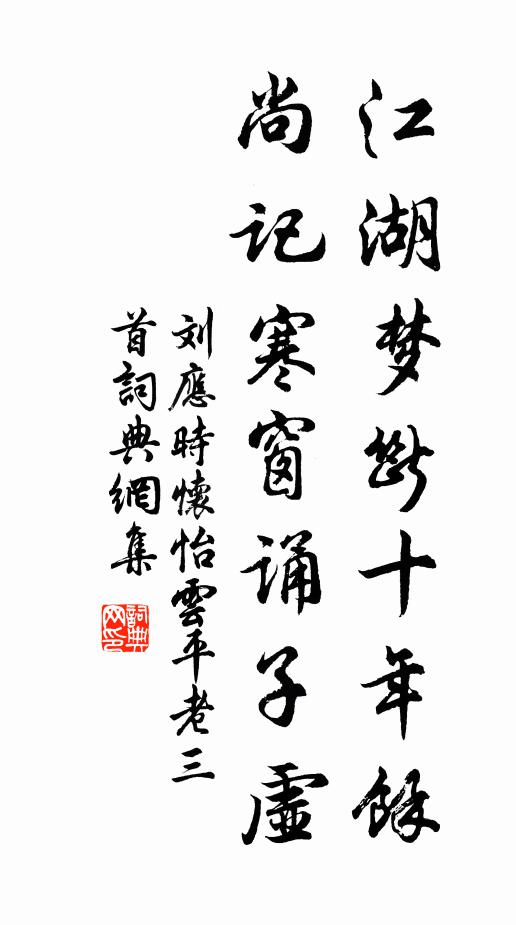 江湖梦斷十年餘
尚记寒窗诵子虛
刘應時懷怡雲平老三
首詞典網集
詞典
网印